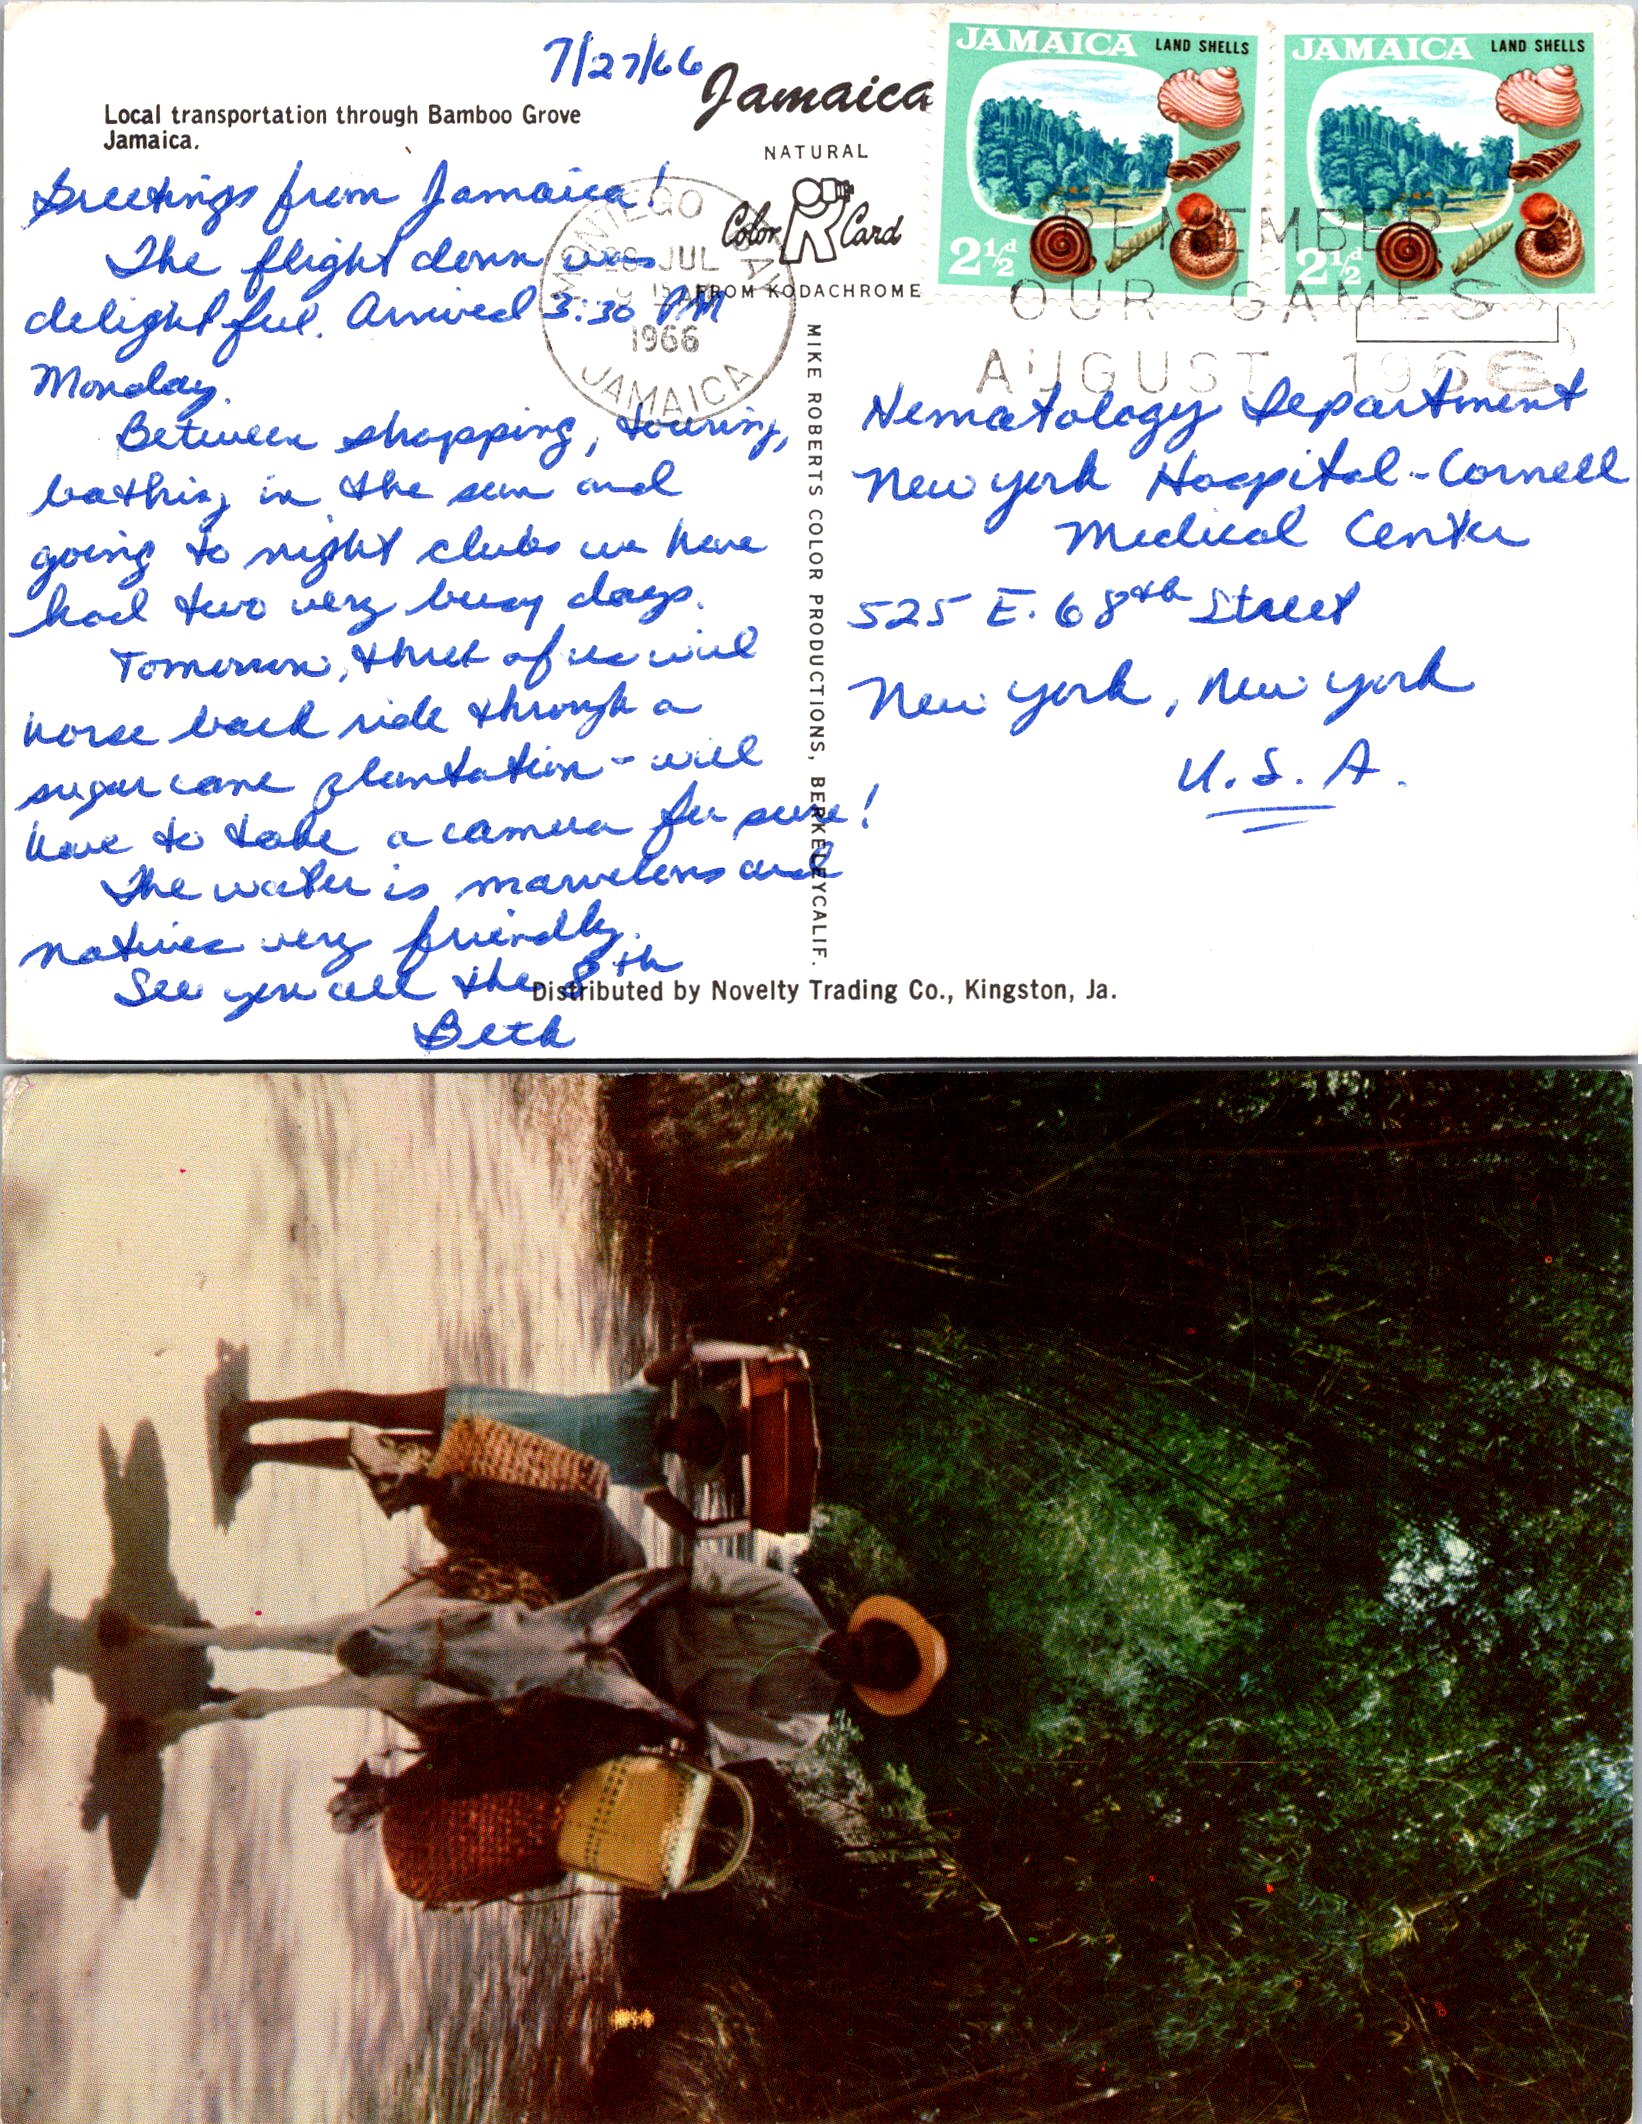 7/27/66
Jamaica
Local transportation through Bamboo Grove
Jamaica.
NATURAL
Color Card
FROM KODACHROME
JAMAICA LAND SHELLS
2½d
JAMAICA LAND SHELLS
2½d
MONTEGO BAY
28 JUL
1966
JAMAICA
REMEMBER
OUR GAMES
AUGUST 1966
Greetings from Jamaica!
The flight down was
delightful. Arrived 3:30 PM
Monday.
Between shopping, touring,
bathing in the sun and
going to night clubs we have
had two very busy days.
Tomorrow, three of us will
horse back ride through a
sugar cane plantation - will
have to take a camera for sure!
The water is marvelous and
natives very friendly.
See you all the 8th
Beth
MIKE ROBERTS COLOR PRODUCTIONS, BERKELEY CALIF.
Nematology Department
New York Hospital - Cornell
Medical Center
525 E. 68th Street
New York, New York
U.S.A.
Distributed by Novelty Trading Co., Kingston, Ja.